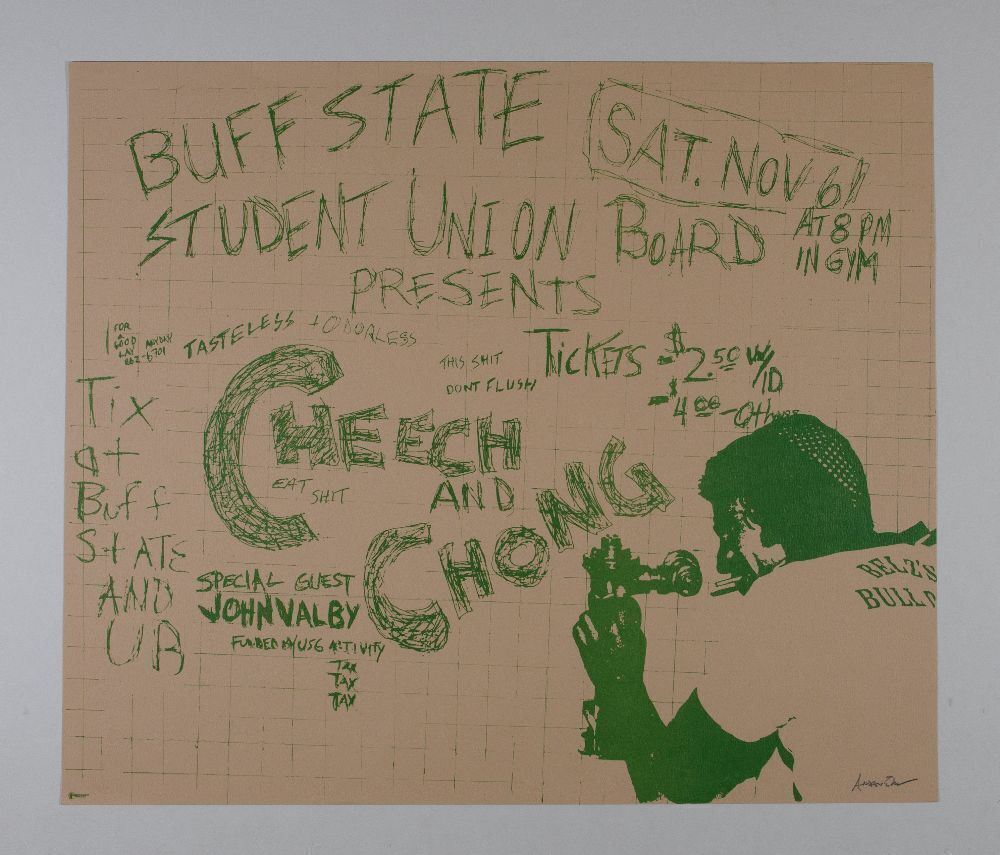 BUFF STATE
STUDENT UNION BOARD
PRESENTS
SAT. NOV 6
AT 8 PM
IN GYM
FOR
A
GOOD
LAY
862-6701
TASTELESS + ODORLESS
THIS SHIT
DONT FLUSH
TICKETS - $2.50 W/ID
- $4.00 - Others
Tix
at
Buff
StATE
AND
UB
CHEECH
AND
CHONG
EAT
SHIT
SPECIAL GUEST
JOHN VALBY
FUNDED BY USG ACTIVITY
TAX
TAX
TAX
BELZ'S
BULL